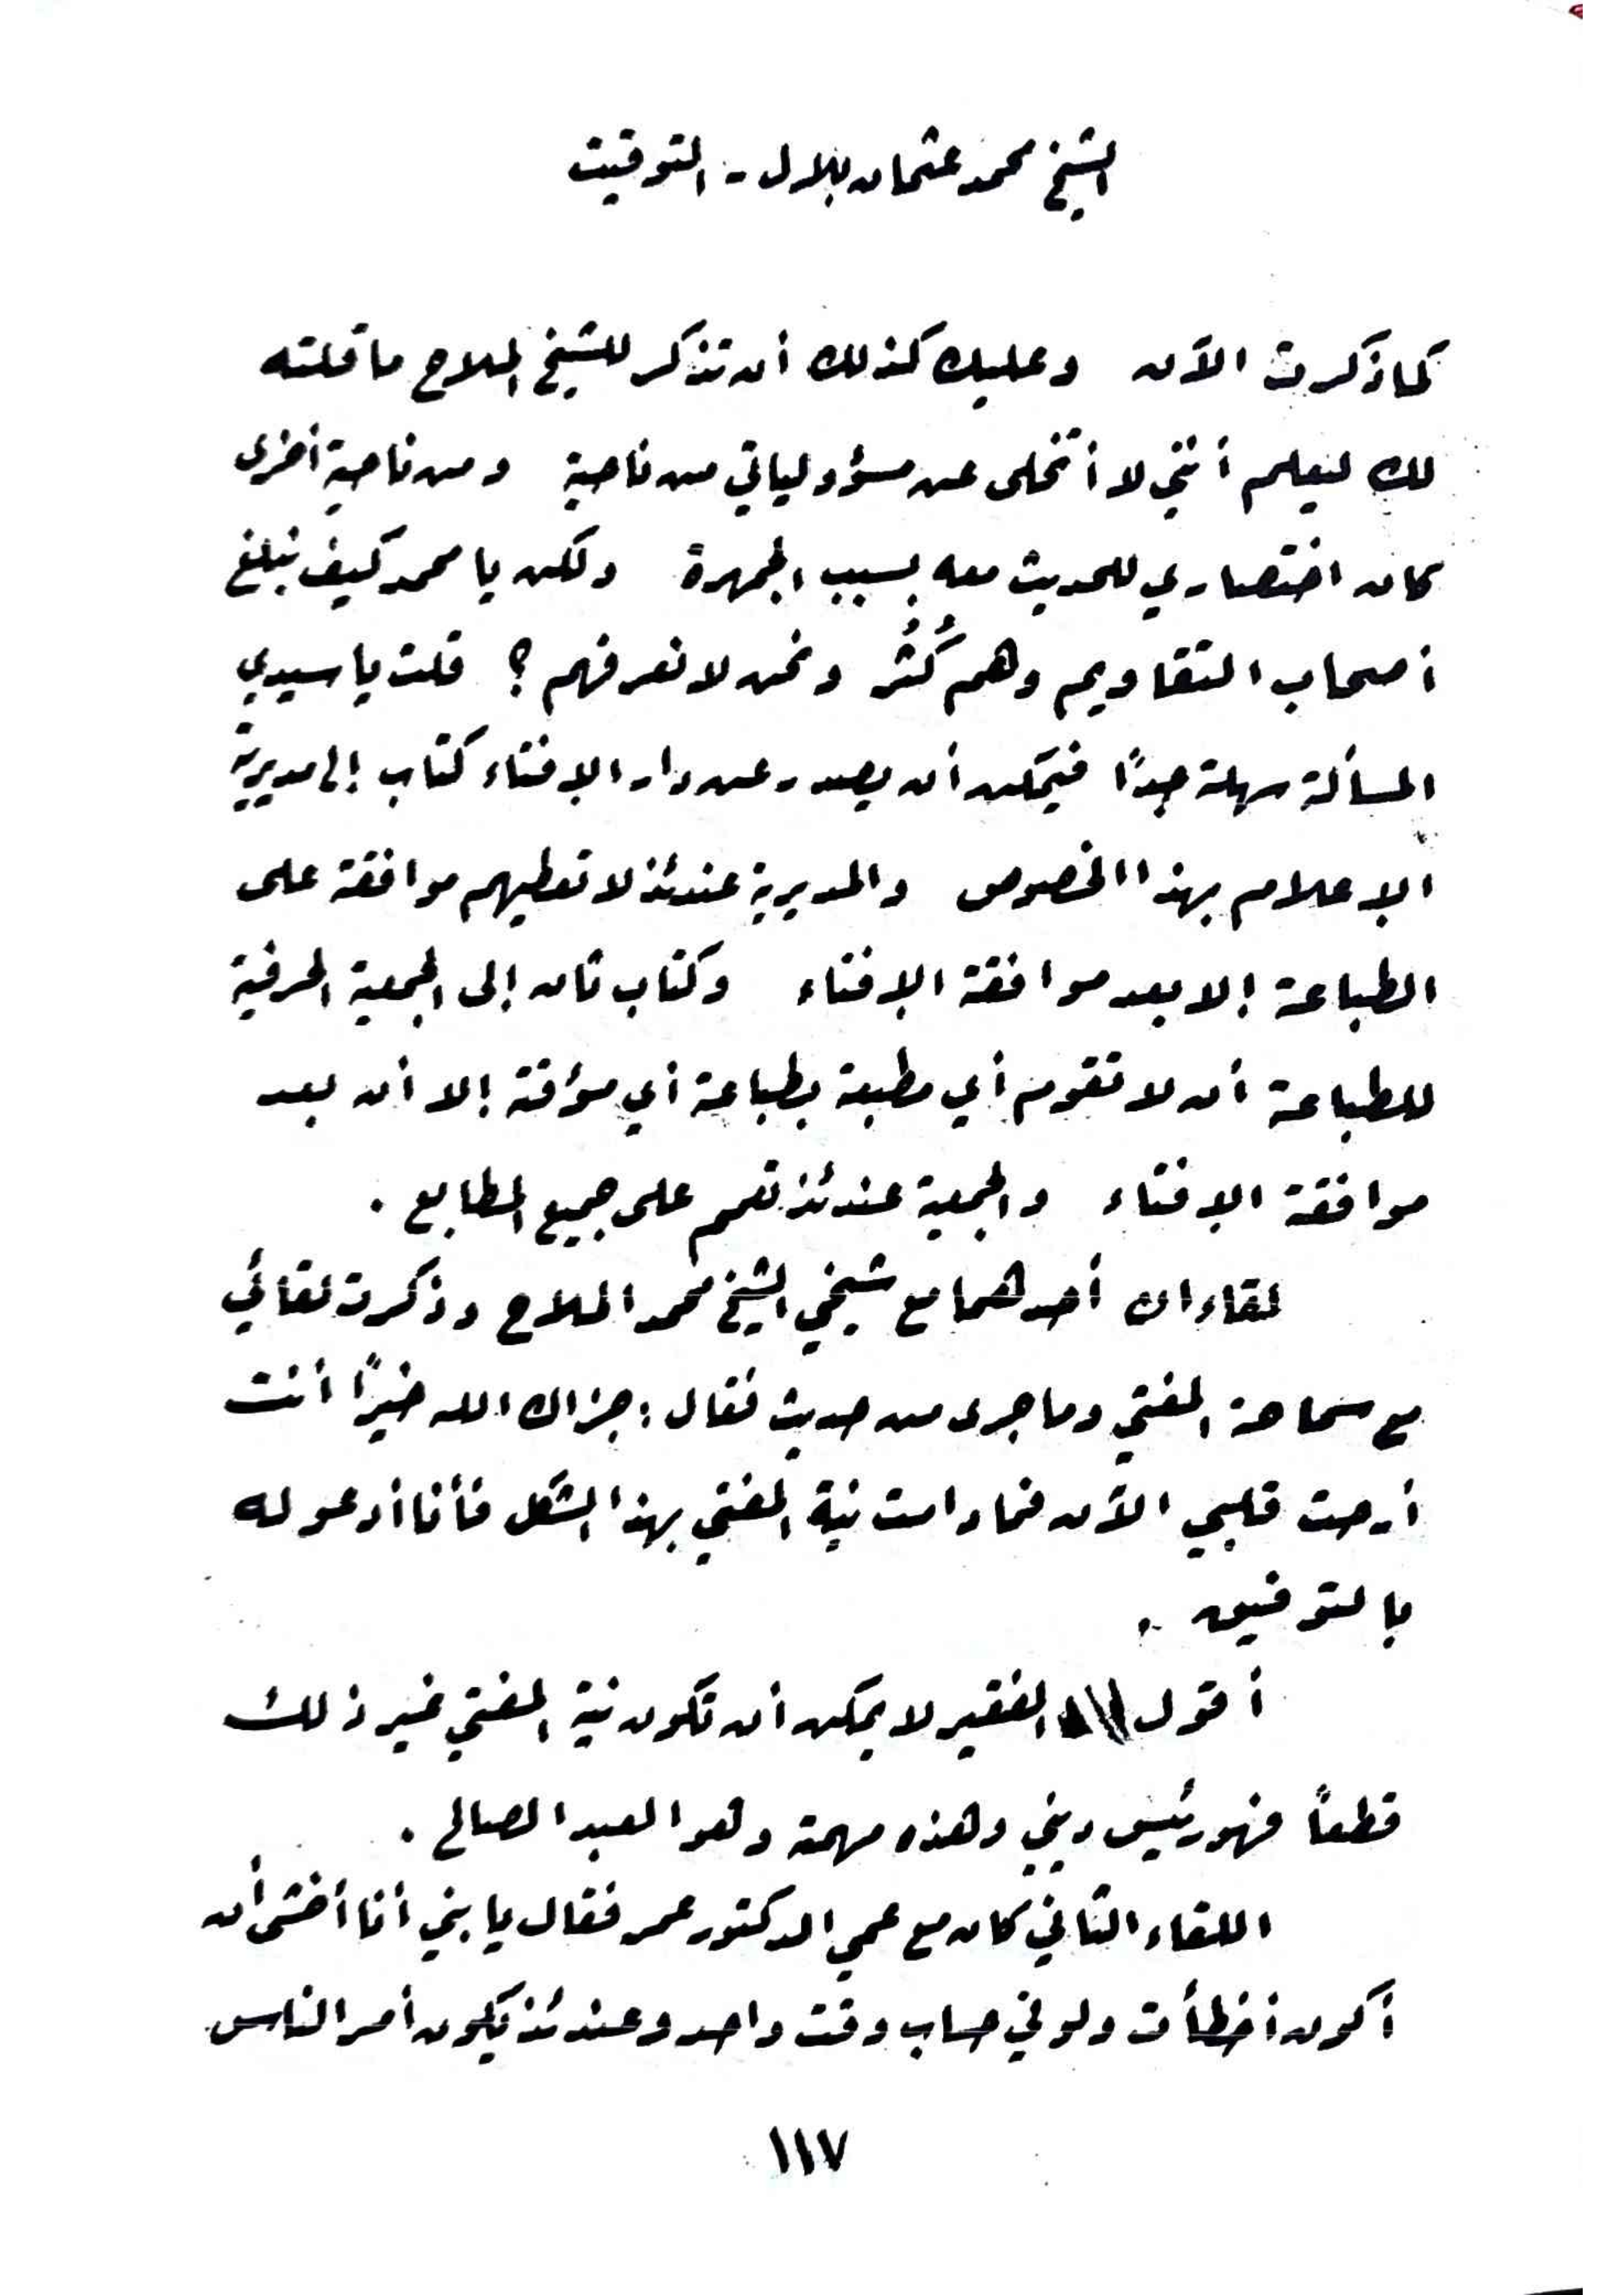 الشيخ محمد عثمان بلال - التوقيت
كما ذكرت الآن وعليك كذلك أن تذكر للشيخ الملاح ما قلته
لك ليعلم أنني لا أتخلى عن مسؤولياتي من ناحية ومن ناحية أخرى
كان اختصاري للحديث معه بسبب الجمهرة ولكن يا محمد كيف نبلغ
أصحاب التقاويم وهم كُثُر ونحن لا نعرفهم؟ قلت يا سيدي
المسألة سهلة جداً فيمكن أن يصدر عن دار الإفتاء كتاب إلى مديرية
الإعلام بهذا الخصوص والمديرية عندئذ لا تعطيهم موافقة على
الطباعة إلا بعد موافقة الإفتاء وكتاب ثان إلى الجمعية الحرفية
للطباعة أن لا تقوم أي مطبعة بطباعة أي مؤقتة إلا أن بعد
موافقة الإفتاء والجمعية عندئذ تعمم على جميع المطابع.
لقاءان أحدهما مع شيخي الشيخ محمد الملاح وذكرت لقائي
مع سماحة المفتي وما جرى من حديث فقال: جزاك الله خيراً أنت
أرحت قلبي الآن فما دامت نية المفتي بهذا الشكل فأنا أدعو له
بالتوفيق.
أقول الفقير لا يمكن أن تكون نية المفتي غير ذلك
قطعاً فهو رئيس ديني وهذه مهمة وهو العبد الصالح.
اللقاء الثاني كان مع عمي الدكتور عمر فقال يا بني أنا أخشى أن
أكون أخطأت ولو في حساب وقت واحد وعندئذ يكون أمر الناس
١١٧